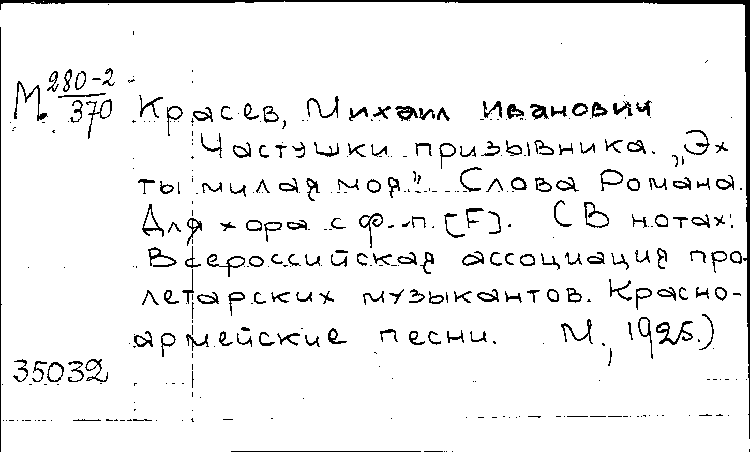 М 280-2
370 Красев, Михаил Иванович
Частушки призывника. „Эх
ты милая моя". Слова Романа.
Для хора с ф.-п. [F]. (В нотах:
Всероссийская ассоциация про-
летарских музыкантов. Красно-
армейские песни. М., 1925.)
35032